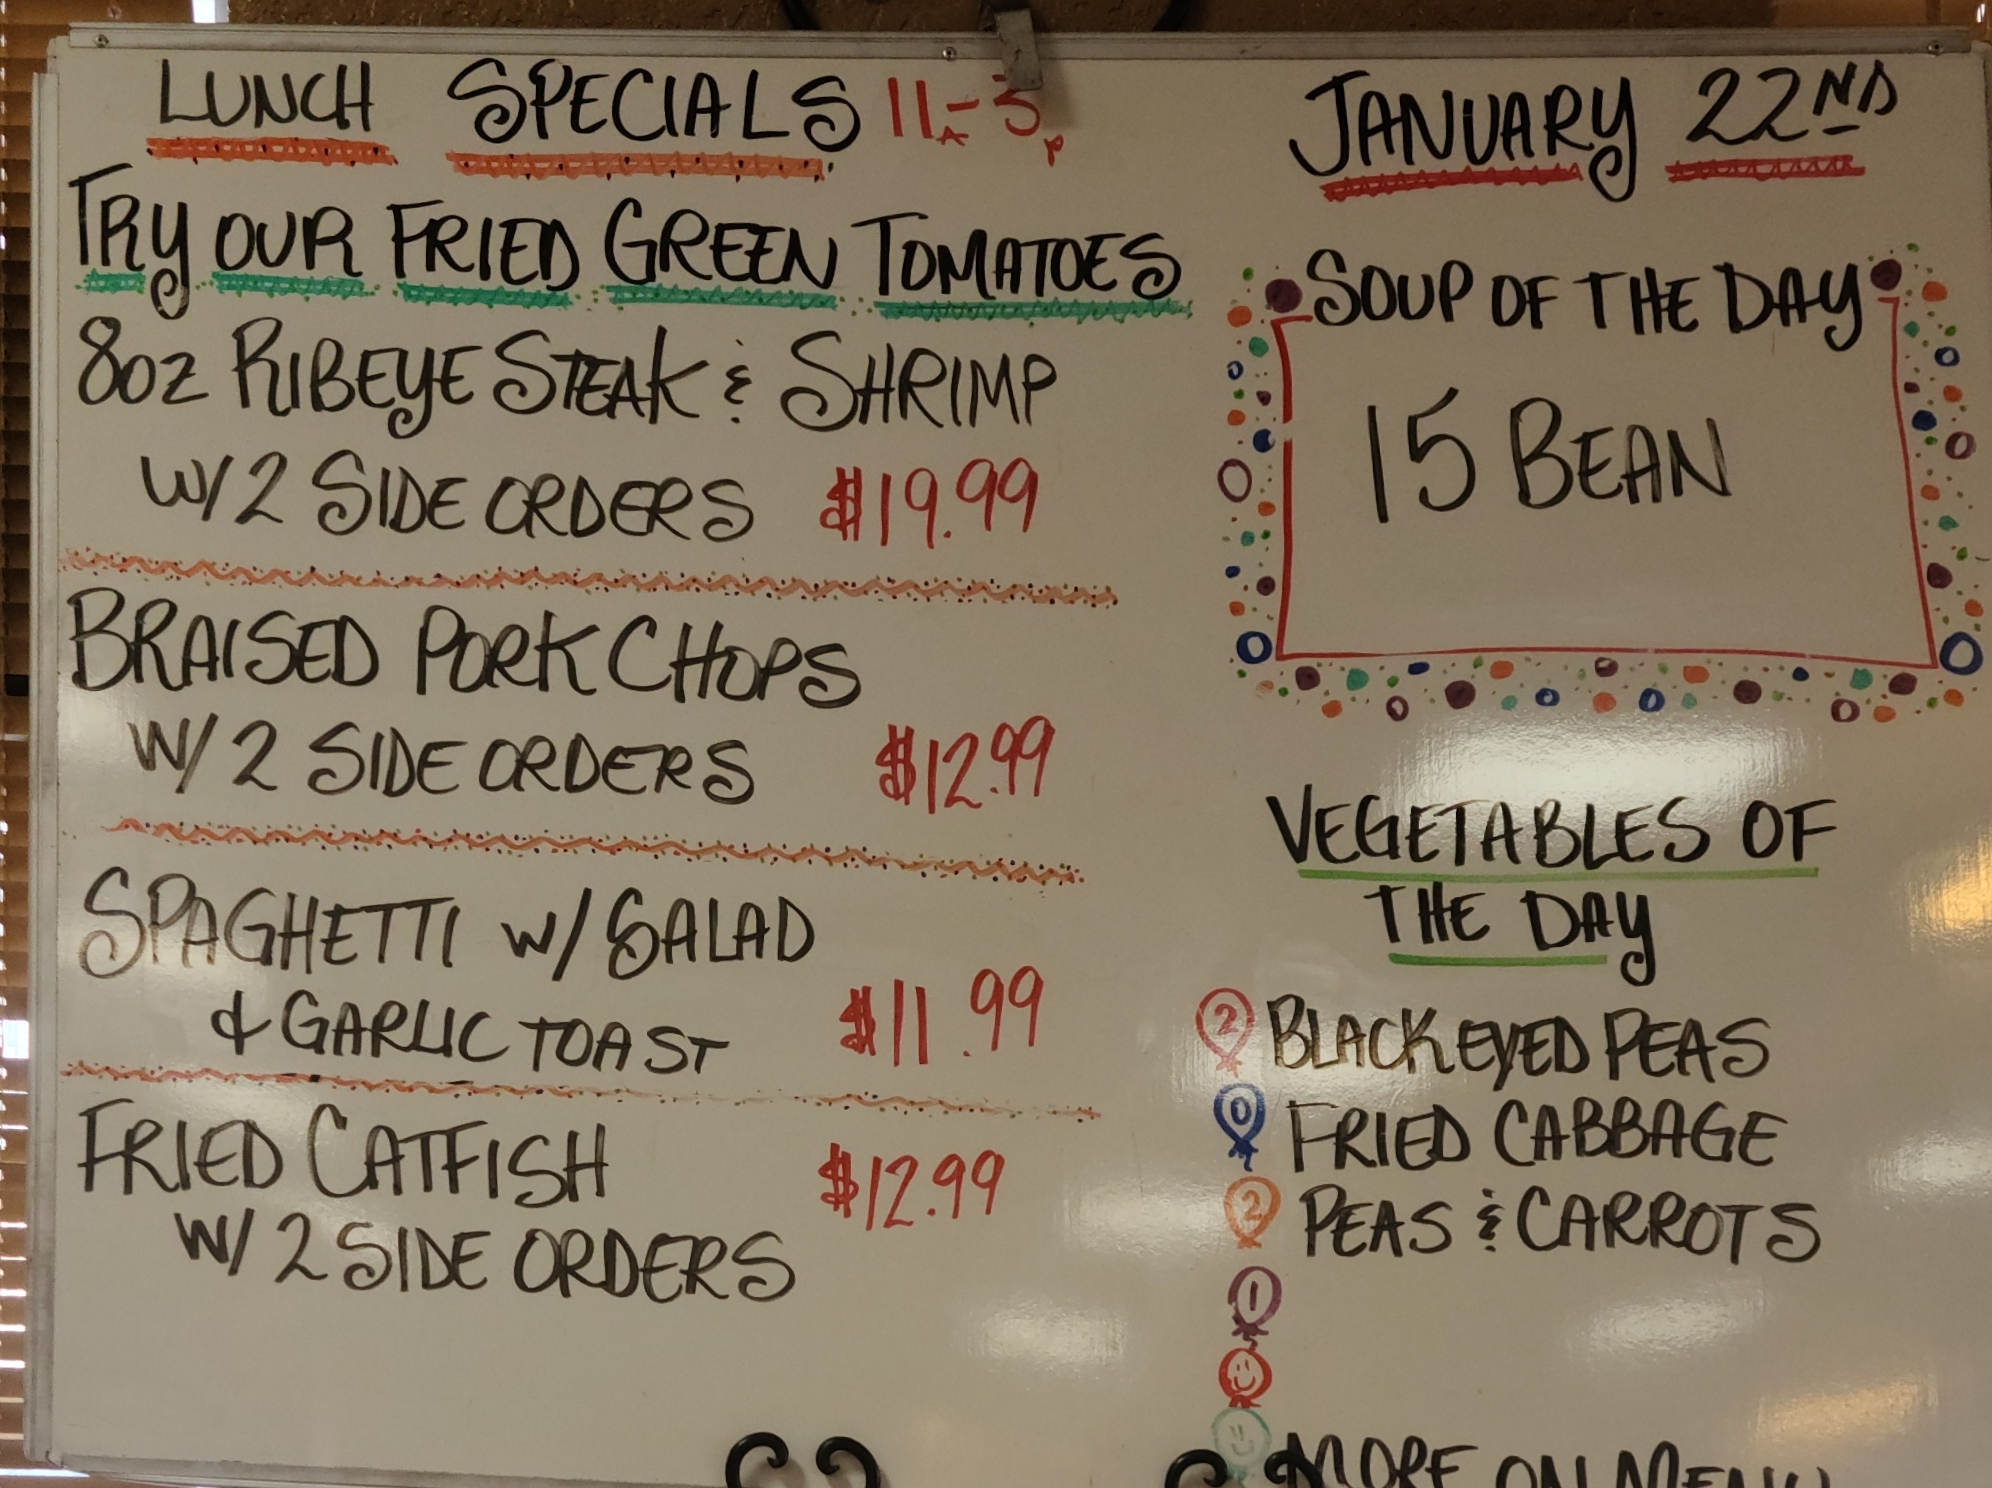 LUNCH SPECIALS 11A-3P
TRY OUR FRIED GREEN TOMATOES
8OZ RIBEYE STEAK & SHRIMP
W/2 SIDE ORDERS $19.99
BRAISED PORK CHOPS
W/ 2 SIDE ORDERS $12.99
SPAGHETTI W/ SALAD
& GARLIC TOAST $11.99
FRIED CATFISH $12.99
W/ 2 SIDE ORDERS
JANUARY 22ND
SOUP OF THE DAY
15 BEAN
VEGETABLES OF
THE DAY
2 BLACK EYED PEAS
0 FRIED CABBAGE
2 PEAS & CARROTS
1
MORE ON MENU